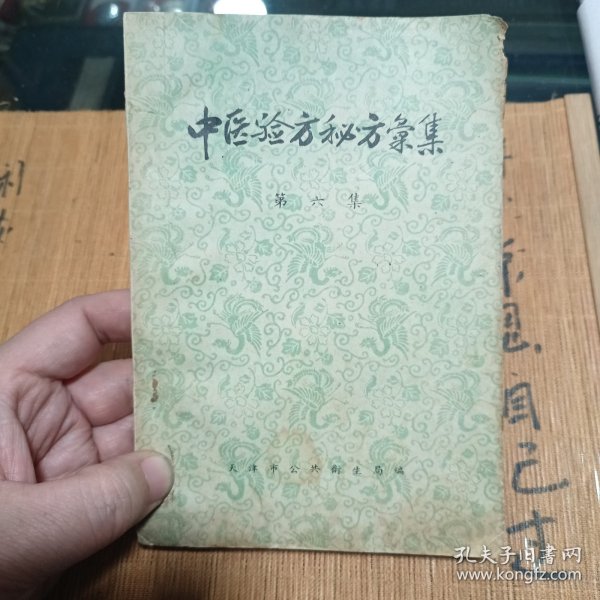 中医验方秘方彙集
第六集
天津市公共衛生局编
自己
孔夫子旧书网
www.kongfz.com